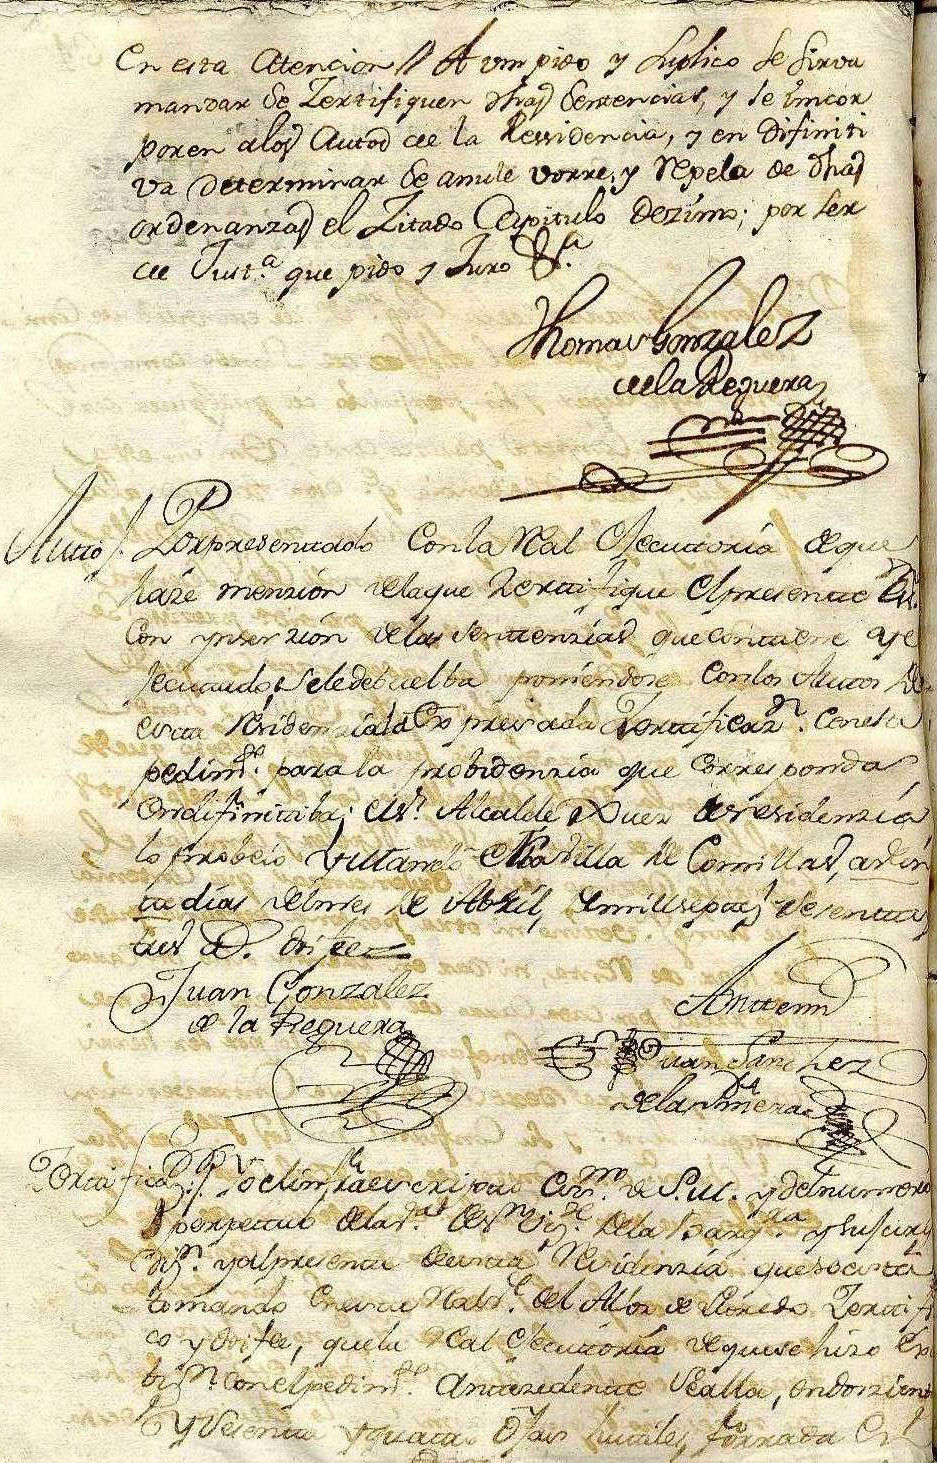 En esta Atencion // A vm pido y suplico se sirva
mandar se Zertifiquen dhas sentencias, y se incor
poren alos Autos de la Ressidencia, y en difiniti
va determinar se anule borre, y repela de dhas
ordenanzas el Zitado Capitulo dezimo; por ser
de Justa que pido y Juro &a
Thomas Gonzalez
de la Reguera
Auto / Por presentado Con la Real Executoria de que
haze menzion de la que Zertifique el presente
Con ynserzion de las sentenzias que contiene y e
secutado, sele debuelba poniendose, Con los Autos de
esta Residenzia la expresada Zertificazn. Con este
pedimto. para la probidenzia que Corresponda
en difinitiba; el sr. Alcalde Juez de residenzia
lo probeio estando en la villa de Comillas, a
ta dias del mes de Abril, de mill septs. sesenta y
tres de
Juan Gonzalez
de la Reguera
Antemi
Juan Sanchez
de la
Zertificazn. / Yo el infraescripto essno. de S.M. y del numero
perpetuo de la
dizn. y al presente de esta Residenzia que se esta
tomando en este del Alfoz de Lloredo Zertifi
co y doi fee, que la Real Executoria de que se hizo
bizn. con el pedimto. Antezedente se alla, en donzientas
y sesenta y quatro ojas utiles, forrada en